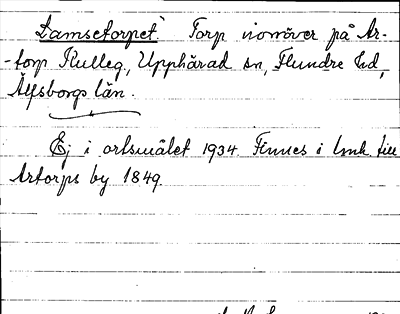 Lamsetorpet. Torp norröver på Ar-
-torp Kulleg., Upphärad sn, Flundre hd,
Älfsborgs län.
Ej i ortsmålet 1934. Finnes i link till
Artorps by 1849.